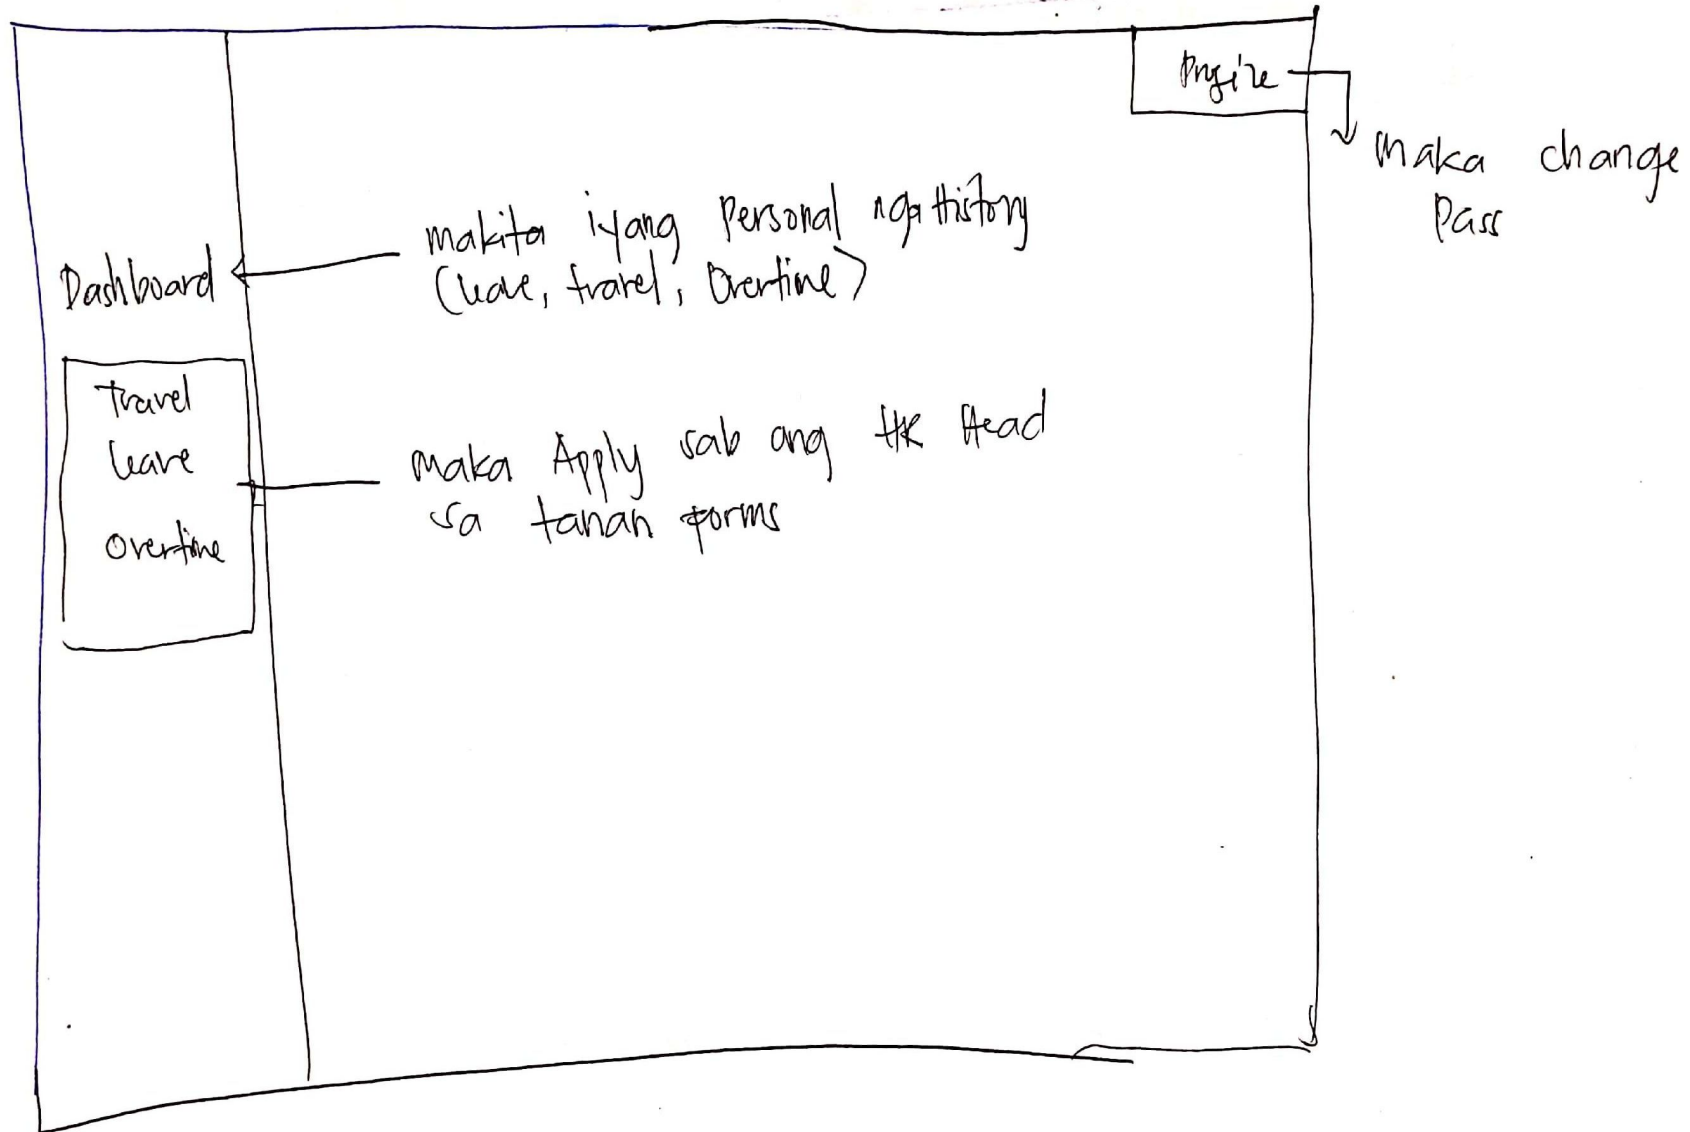 Profile
maka change
pass
makita iyang personal nga History
(leave, travel, Overtime)
Dashboard
Travel
leave
Overtime
maka Apply sab ang HR Head
sa tanan forms